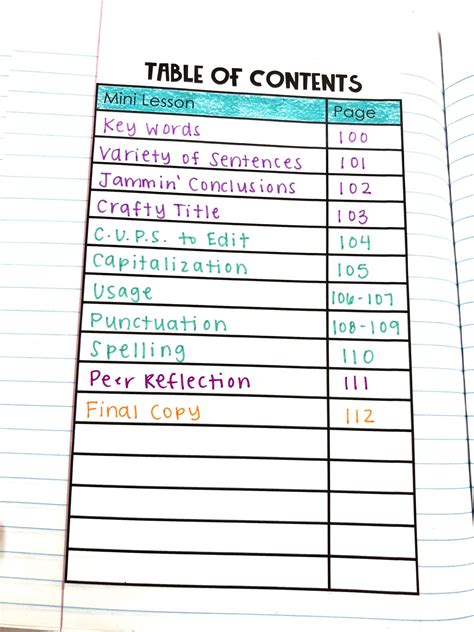 TABLE OF CONTENTS
Mini Lesson Page
Key Words 100
Variety of Sentences 101
Jammin' Conclusions 102
Crafty Title 103
C.U.P.S. to Edit 104
Capitalization 105
Usage 106-107
Punctuation 108-109
Spelling 110
Peer Reflection 111
Final Copy 112